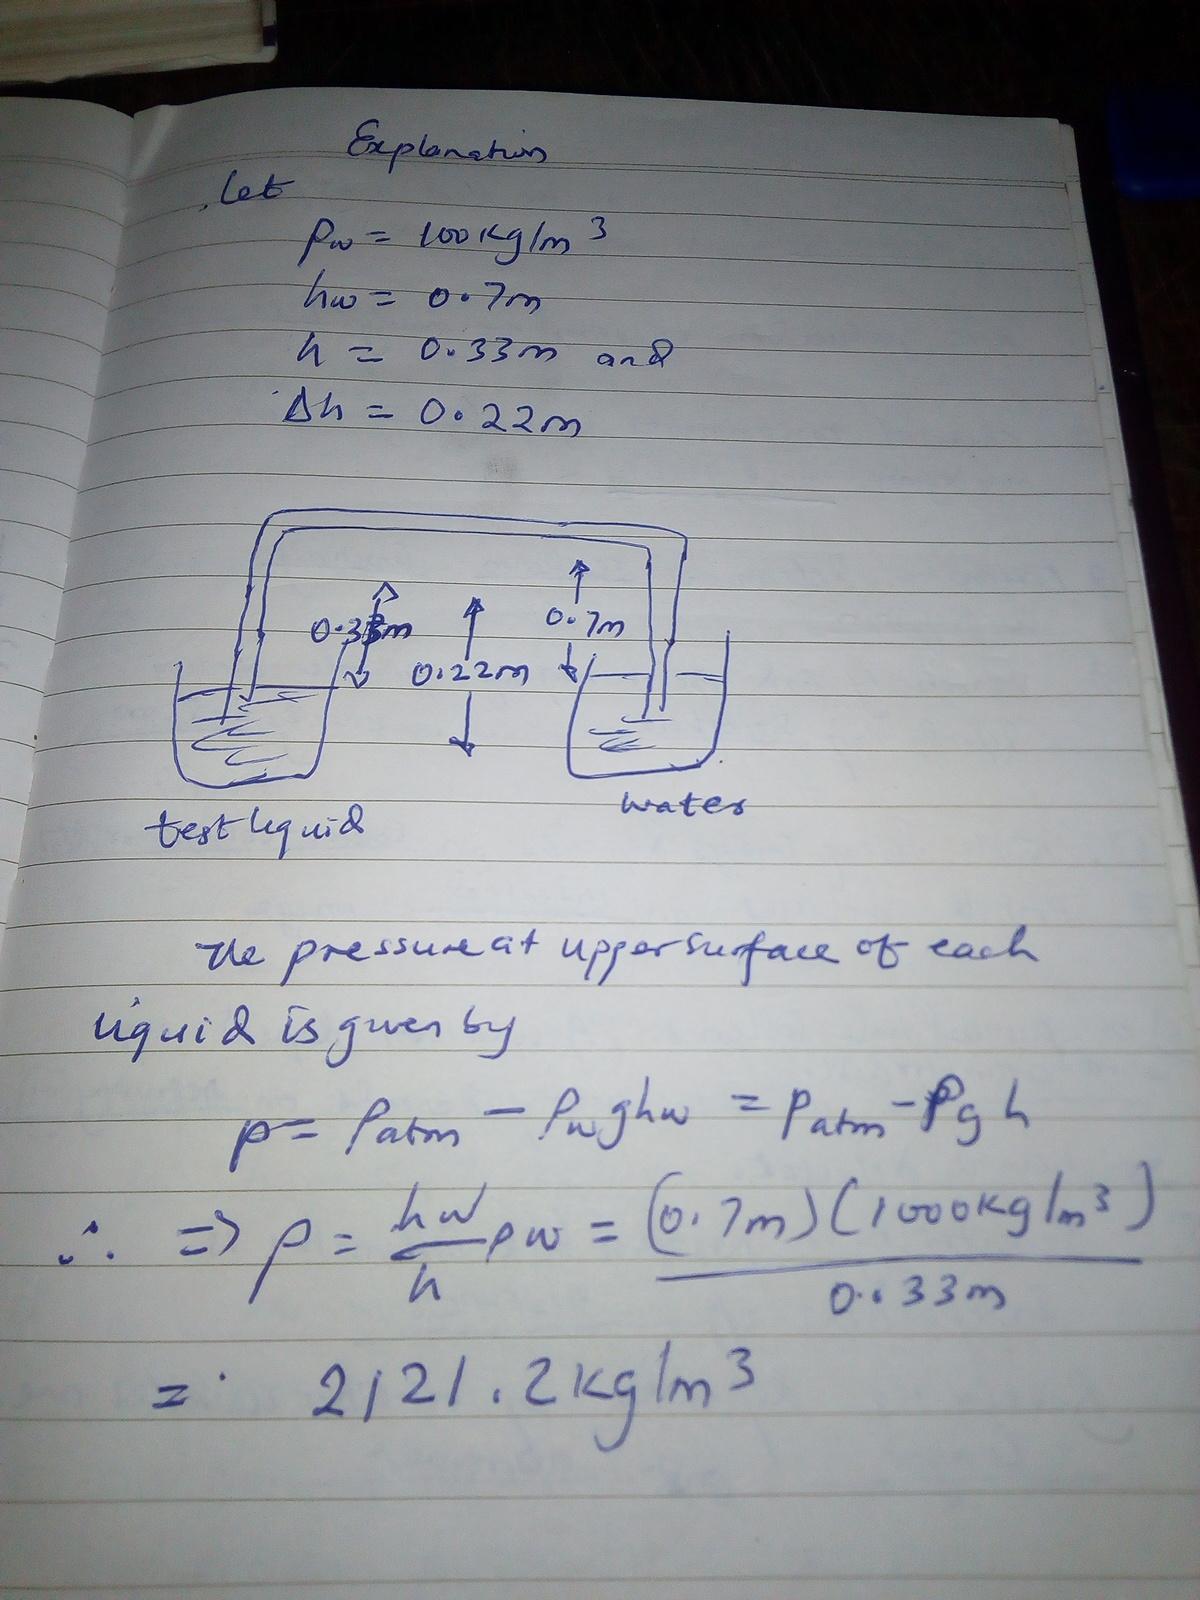 Explanation
Let
ρw = 100kg/m³
hw = 0.7m
h = 0.33m and
Δh = 0.22m
0.33m
0.7m
0.22m
test liquid
water
The pressure at upper surface of each
liquid is given by
p = Patm - ρwghw = Patm - ρgh
∴ ⇒ ρ = hw/h ρw = (0.7m)(1000kg/m³)/0.33m
= 2121.2kg/m³